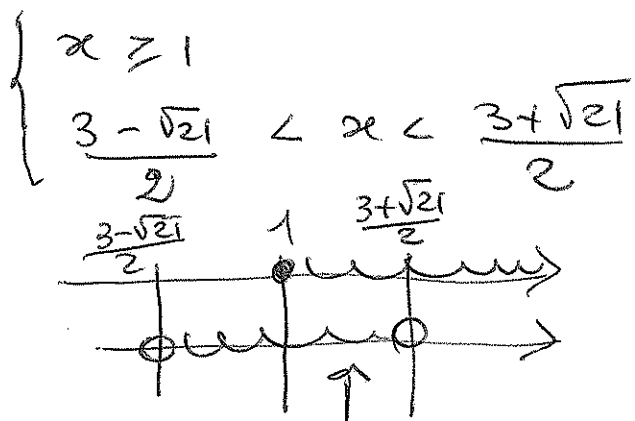 x ≥ 1
(3 - √21)/2 < x < (3 + √21)/2
(3-√21)/2 1 (3+√21)/2